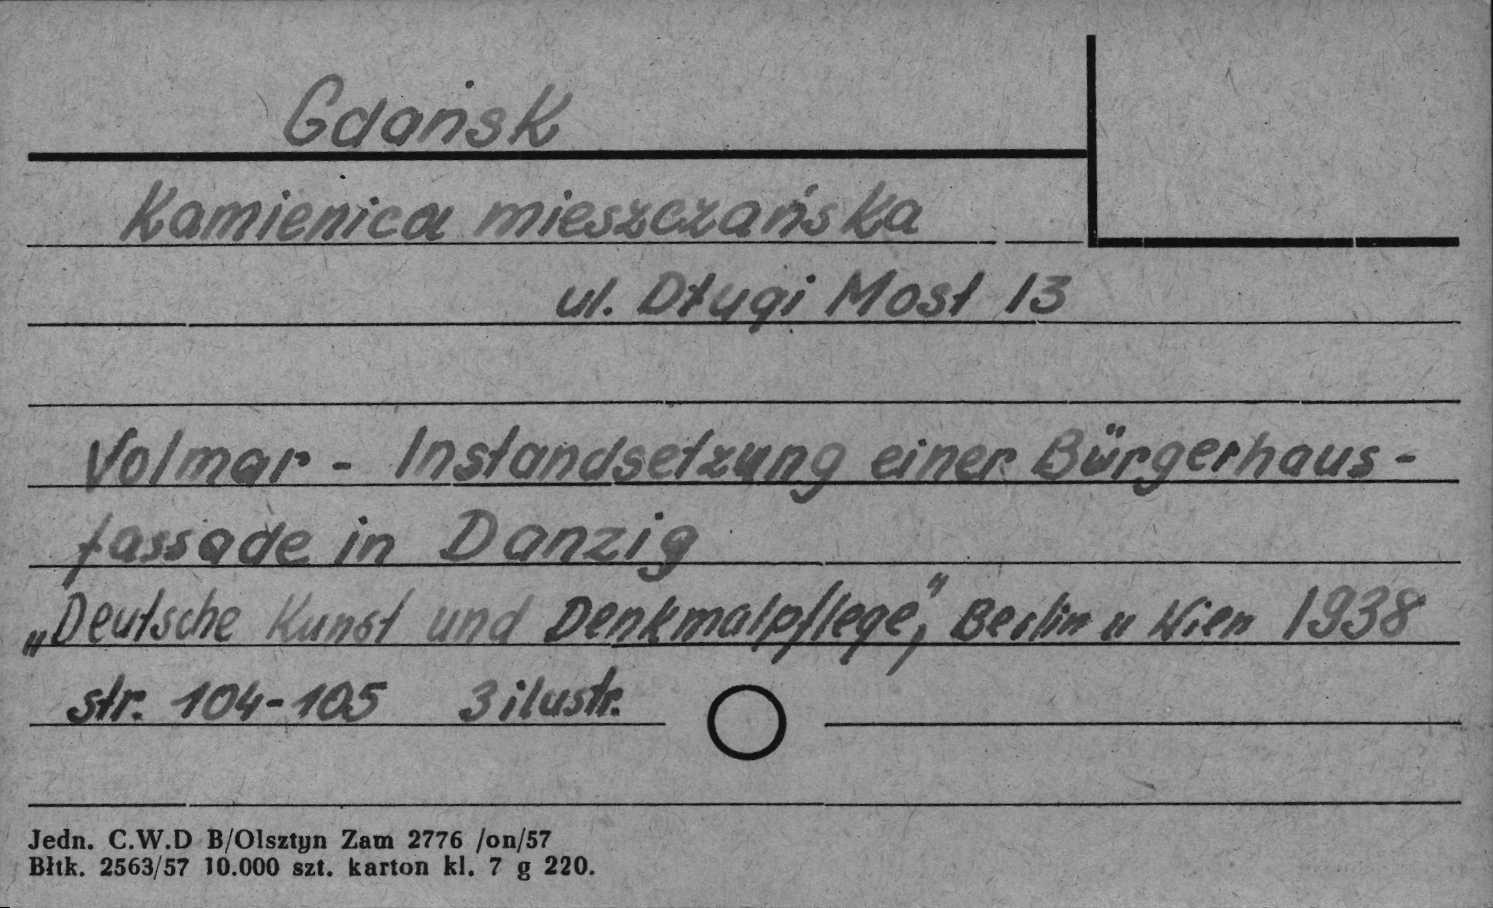 Gdańsk
Kamienica mieszczańska
ul. Długi Most 13
Volmar - Instandsetzung einer Bürgerhaus-
fassade in Danzig
„Deutsche Kunst und Denkmalpflege", Berlin u Wien 1938
str. 104-105 3 ilustr.
Jedn. C.W.D B/Olsztyn Zam 2776 /on/57
Błtk. 2563/57 10.000 szt. karton kl. 7 g 220.